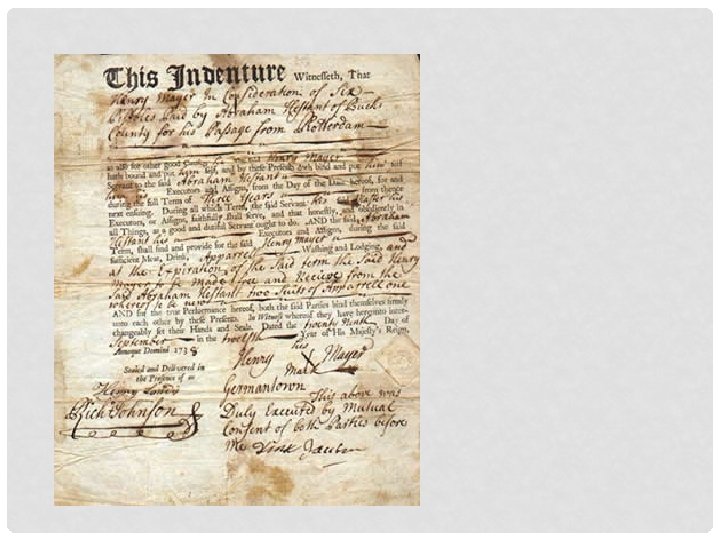 This Indenture Witnesseth, That
Henry Mayer in Consideration of Six
Pistoles Paid by Abraham Hestant of Bucks
County for his Passage from Rotterdam
as also for other good Causes he the said Henry Mayer
hath bound and put him self, and by these Presents doth bind and put him self
Servant to the said Abraham Hestant
his Executors and Assigns, from the Day of the Date hereof, for and
during the full Term of Three Years from thence
next ensuing. During all which Term, the said Servant his Master his
Executors, or Assigns, faithfully shall serve, and that honestly, and obediently in
all Things, as a good and dutiful Servant ought to do. AND the said Abraham
Hestant his Executors and Assigns, during the said
Term, shall find and provide for the said Henry Mayer
sufficient Meat, Drink, Apparel Washing and Lodging, and
at the Expiration of the Said term the Said Henry
Mayer to be Made free and Recieve from the
Said Abraham Hestant two Suits of Apparrell one
whereof to be new
AND for the true Performance hereof, both the said Parties bind themselves firmly
unto each other by these Presents. In Witness whereof they have hereunto inter-
changeably set their Hands and Seals. Dated the twenty Ninth Day of
September in the twelfth Year of His Majesty's Reign,
Annoque Domini 1738
his
Henry X Mayer
Mark
Sealed and Delivered in
the Presence of us
Rich Johnson
Germantown
This above was
Duly Executed by Mutual
Consent of both Parties before
Me